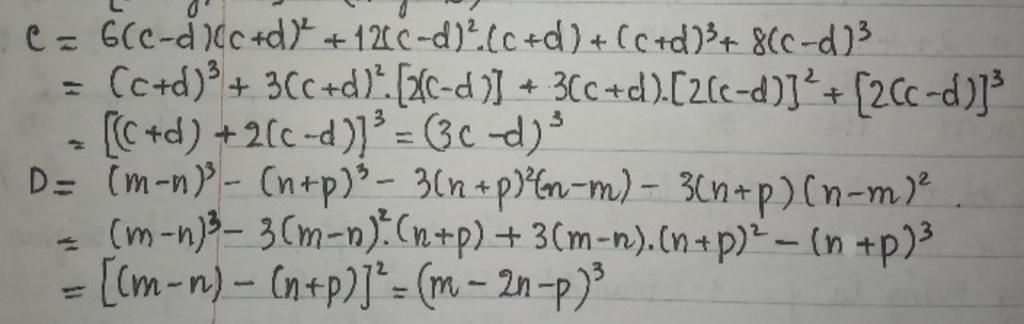 C = 6(c-d)(c+d)² + 12(c-d)².(c+d) + (c+d)³ + 8(c-d)³
= (c+d)³ + 3(c+d)².[2(c-d)] + 3(c+d).[2(c-d)]² + [2(c-d)]³
= [(c+d) + 2(c-d)]³ = (3c-d)³
D = (m-n)³ - (n+p)³ - 3(n+p)²(n-m) - 3(n+p)(n-m)².
= (m-n)³ - 3(m-n)².(n+p) + 3(m-n).(n+p)² - (n+p)³
= [(m-n) - (n+p)]² = (m-2n-p)³